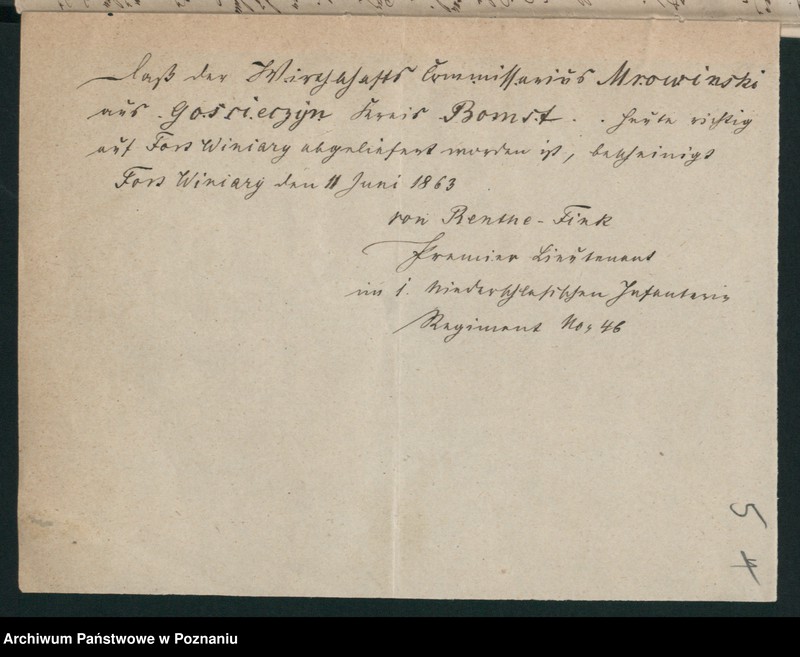 Daß der Wirthschafts Commissarius Mrowinski
aus Gościeczyn Kreis Bomst . . heute richtig
auf Fort Winiary abgeliefert worden ist, bescheinigt
Fort Winiary den 11 Juni 1863
von Renthe-Fink
Premier Lieutenant
im 1. Niederschlesischen Infanterie
Regiment No: 46
5
4
Archiwum Państwowe w Poznaniu